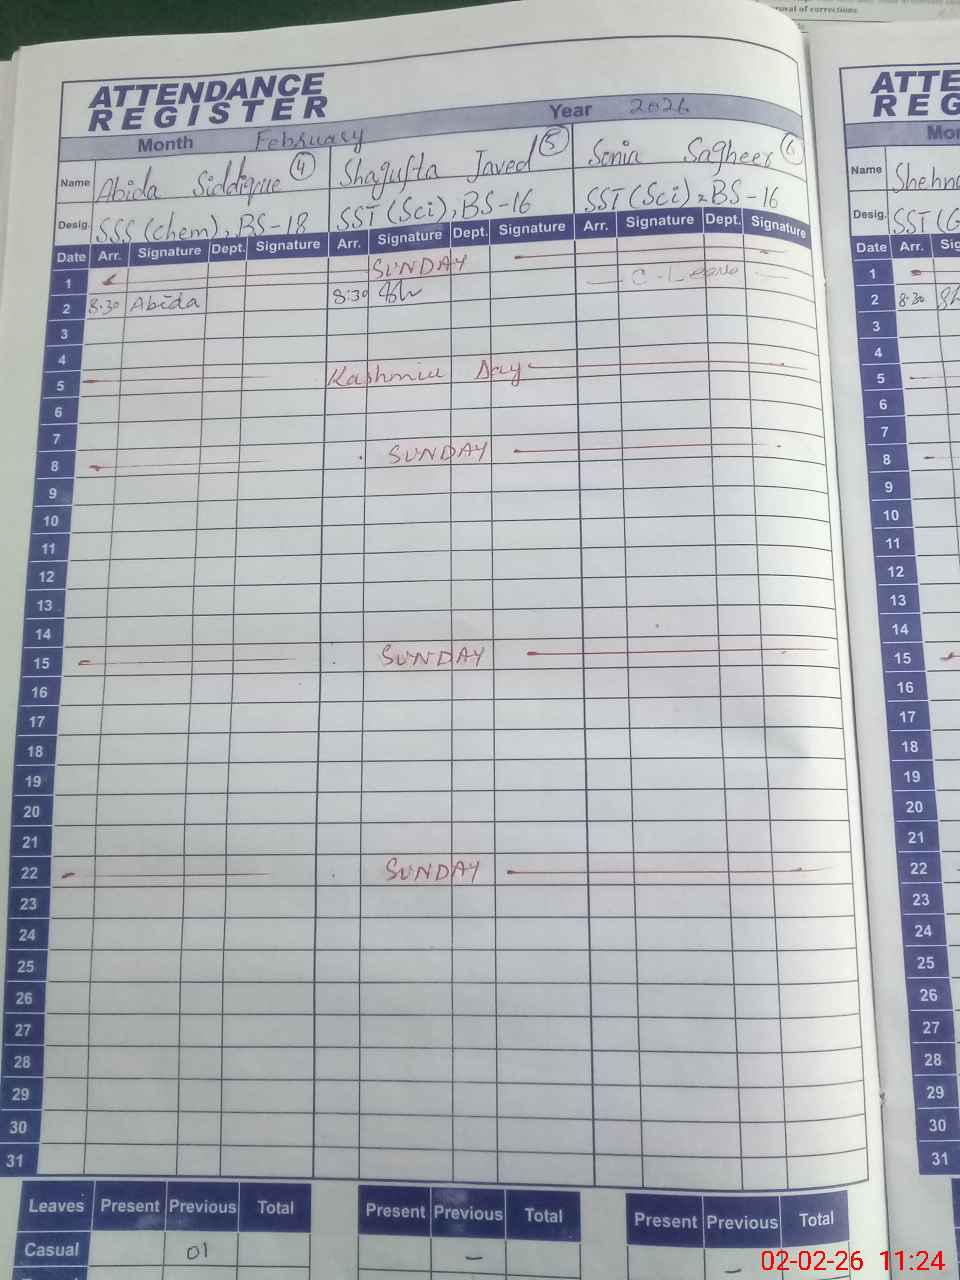 roval of corrections
ATTENDANCE REGISTER
Month February Year 2026
Name Abida Siddique 4 Shagufta Javed 5 Sonia Sagheer 6
Desig. SSS (chem), BS-18 SST (Sci), BS-16 SST (Sci), BS-16
Date Arr. Signature Dept. Signature Arr. Signature Dept. Signature Arr. Signature Dept. Signature
1 SUNDAY
2 8:30 Abida 8:30 C-Leave
3
4
5 Kashmir Day
6
7
8 SUNDAY
9
10
11
12
13
14
15 SUNDAY
16
17
18
19
20
21
22 SUNDAY
23
24
25
26
27
28
29
30
31
Leaves Present Previous Total Present Previous Total Present Previous Total
Casual 01 – –
ATTE
REG
Mon
Name Shehna
Desig. SST (G
Date Arr. Sig
1
2 8:30
3
4
5
6
7
8
9
10
11
12
13
14
15
16
17
18
19
20
21
22
23
24
25
26
27
28
29
30
31
02-02-26 11:24